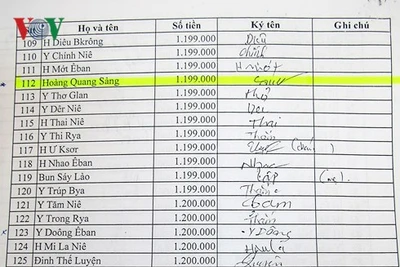 VOV
Họ và tên Số tiền Ký tên Ghi chú
109 H Diêu Bkrông 1.199.000 Diêu
110 Y Chính Niê 1.199.000 Chính
111 H Mớt Êban 1.199.000 H mớt
112 Hoàng Quang Sáng 1.199.000
113 Y Thơ Glan 1.199.000 Thơ
114 Y Dêr Niê 1.199.000
115 H Thai Niê 1.199.000 Thai
116 Y Thi Rya 1.199.000
117 H Ư Ksơr 1.199.000
118 H Nhao Êban 1.199.000 Nhao
119 Bun Sáy Lảo 1.199.000
120 Y Trúp Bya 1.199.000
121 Y Tăm Niê 1.200.000
122 Y Trong Rya 1.200.000
123 Y Doông Êban 1.200.000 Y Dông
124 H Mi La Niê 1.200.000
125 Đinh Thế Luyện 1.200.000